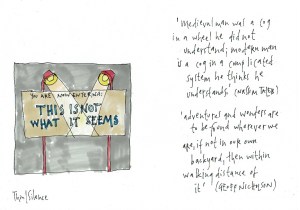 YOU ARE NOW ENTERING
THIS IS NOT
WHAT IT SEEMS
'medieval man was a cog
in a wheel he did not
understand; modern man
is a cog in a complicated
system he thinks he
understands'
'adventures and wonders are
to be found wherever we
are, if not in our own
backyard, then within
walking distance of
it' (GEOFF NICHOLSON)